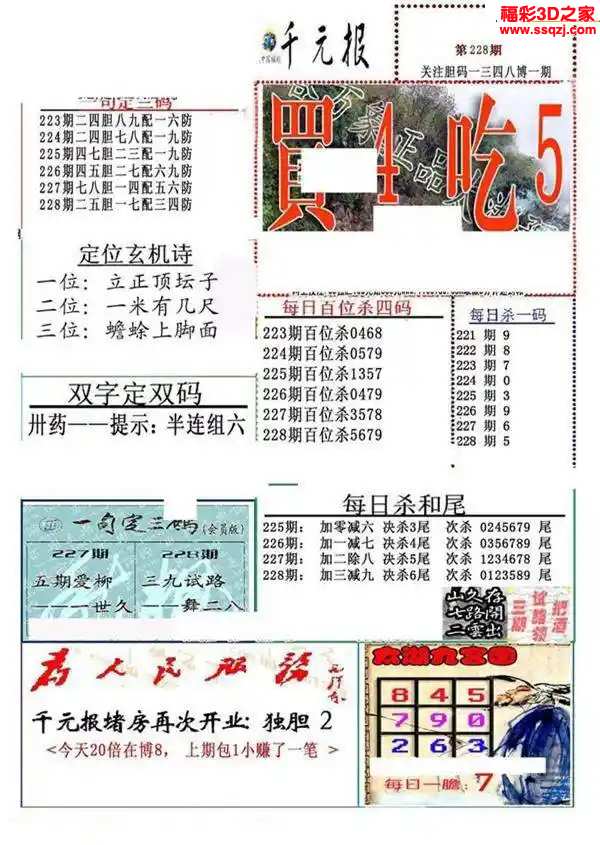 福彩3D之家
www.ssqzj.com
千元报
第228期
关注胆码一三四八博一期
一句定三码
223期二四胆八九配一六防
224期二四胆七八配一九防
225期四七胆二三配一九防
226期四五胆二七配六九防
227期七八胆一四配五六防
228期二五胆一七配三四防
買4吃5
定位玄机诗
一位：立正顶坛子
二位：一米有几尺
三位：蟾蜍上脚面
每日百位杀四码
223期百位杀0468
224期百位杀0579
225期百位杀1357
226期百位杀0479
227期百位杀3578
228期百位杀5679
每日杀一码
221 期 9
222 期 8
223 期 7
224 期 0
225 期 3
226 期 9
227 期 6
228 期 5
双字定双码
卅药——提示：半连组六
一句定三码(会员版)
227期
五期爱柳
——一世久
228期
三九试路
——舞二八
每日杀和尾
225期： 加零减六 决杀3尾 次杀 0245679 尾
226期： 加一减七 决杀4尾 次杀 0356789 尾
227期： 加二除八 决杀5尾 次杀 1234678 尾
228期： 加三减九 决杀6尾 次杀 0123589 尾
山久存
七路閣
二雲出
把酒
试路领
三期
为人民服务
千元报堵房再次开业：独胆 2
<今天20倍在博8， 上期包1小赚了一笔>
8 4 5
7 9 0
2 6 3
每日一胆：7